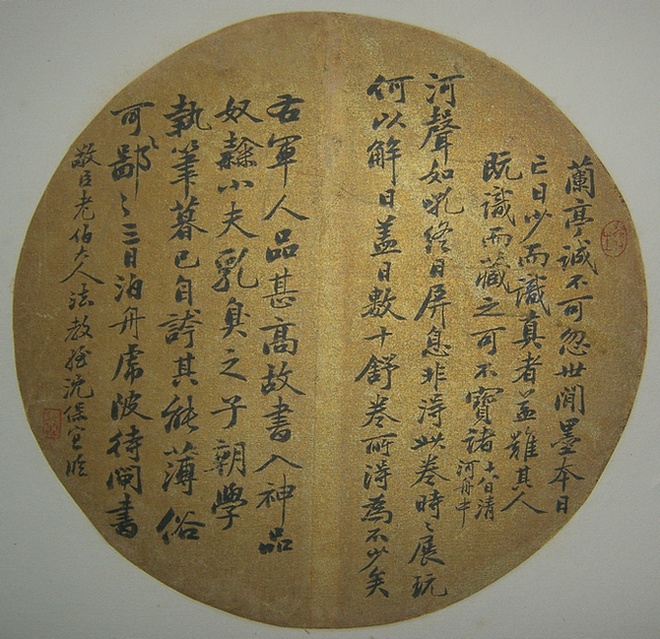 蘭亭誠不可忽世間墨本日
亡日少而識真者益難其人
既識而藏之可不寶諸
十八日清
河舟中
河聲如吼終日屏息非得此卷時〻展玩
何以解日蓋日數十舒卷所得為不少矣
右軍人品甚高故書入神品
奴隸小夫乳臭之子朝學
執筆暮已自誇其能薄俗
可鄙〻三日泊舟虎陂待閘書
敬臣老伯大人法教姪沈保宜臨